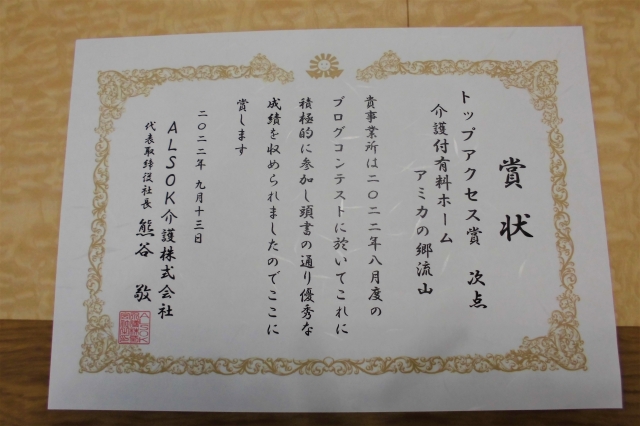 賞状
トップアクセス賞 次点
介護付有料ホーム
アミカの郷流山
貴事業所は二〇二二年八月度の
ブログコンテストに於いてこれに
積極的に参加し頭書の通り優秀な
成績を収められましたのでここに
賞します
二〇二二年 九月十三日
ALSOK介護株式会社
代表取締役社長 熊谷 敬